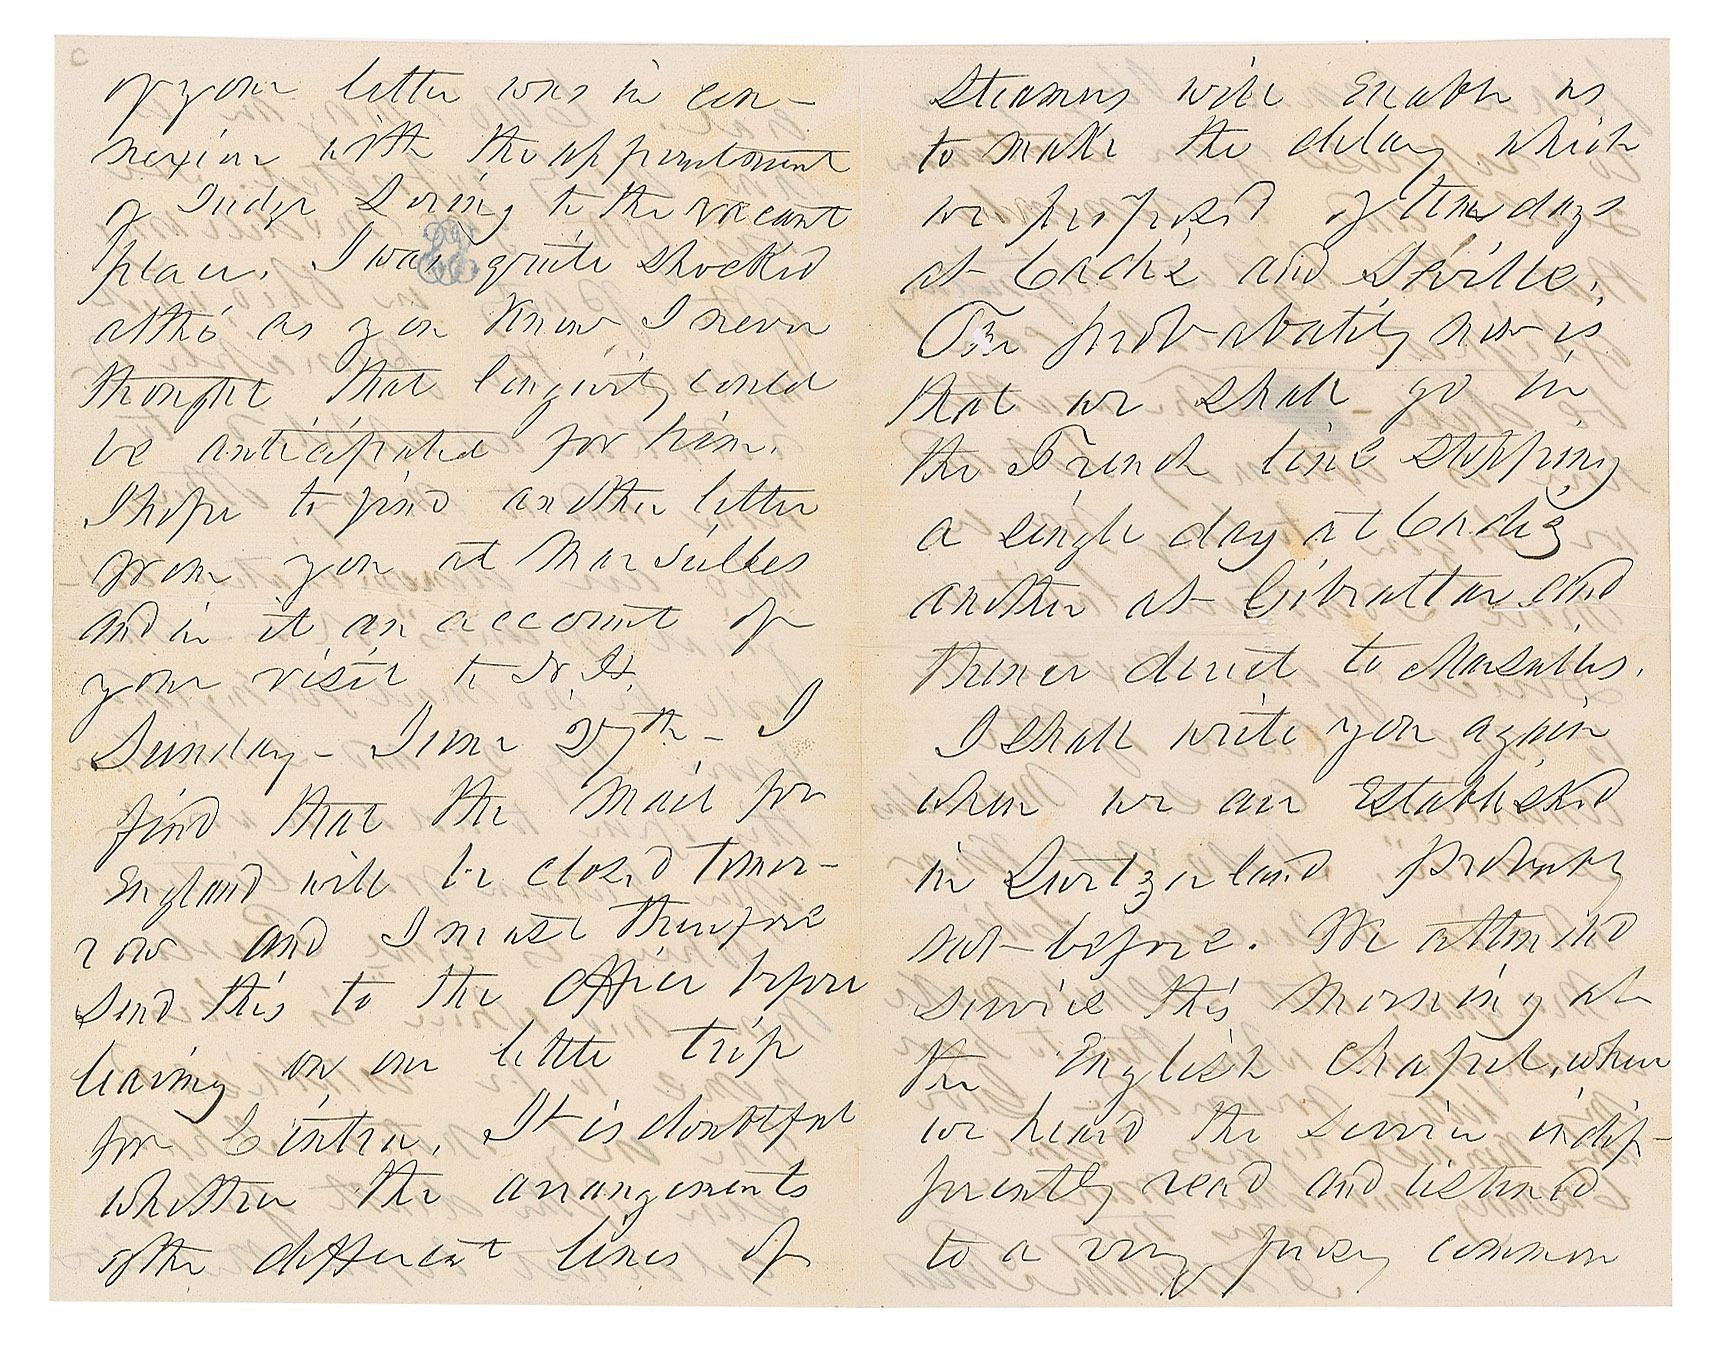 of your letter was in con-
nexion with the appointment
of Judge Loring to the vacant
place. I was quite shocked
altho' as you know I never
thought that longivity could
be anticipated for him.
I hope to find another letter
from you at Marseilles
and in it an account of
your visit to N. H.
Sunday - June 27th - I
find that the Mail for
England will be closed tomor-
row and I must therefore
send this to the office before
leaving on our little trip
for Cintra. It is doubtful
whether the arrangements
of the different lines of
Steamers will enable us
to make the delay which
we proposed of ten days
at Cadiz and Seville.
The probability now is
that we shall go in
the French line stopping
a single day at Cadiz
another at Gibraltar and
thence direct to Marseilles.
I shall write you again
when we are established
in Switzerland probably
not before. We attended
service this Morning at
the English Chapel, where
we heard the service indif-
ferently read and listened
to a very prosy common